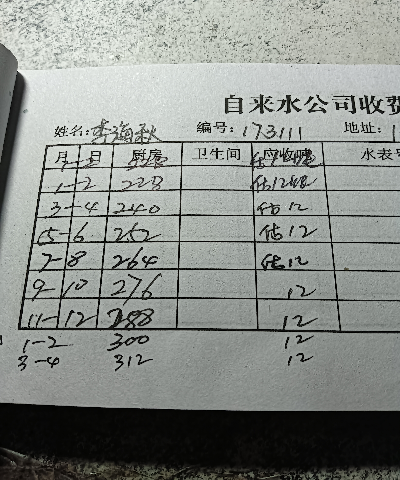 自来水公司收费
姓名:李海秋 编号:173111 地址:
月 月 厨房 卫生间 应收吨 水表
1-2 228 估12
3-4 240 估12
5-6 252 估12
7-8 264 估12
9-10 276 12
11-12 288 12
1-2 300 12
3-4 312 12